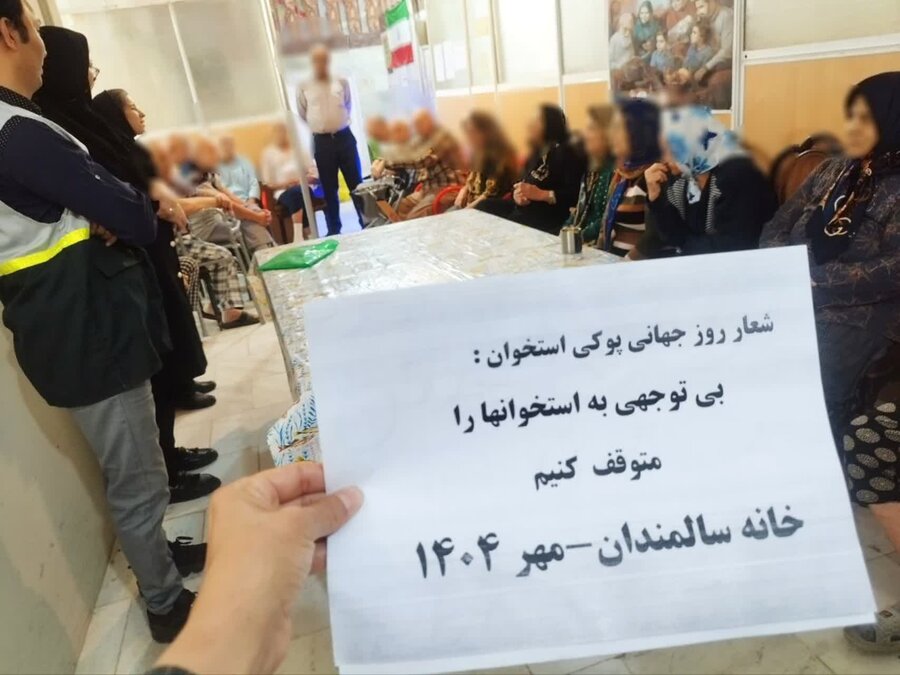 شعار روز جهانی پوکی استخوان :
بی توجهی به استخوانها را
متوقف کنیم
خانه سالمندان-مهر ۱۴۰۴